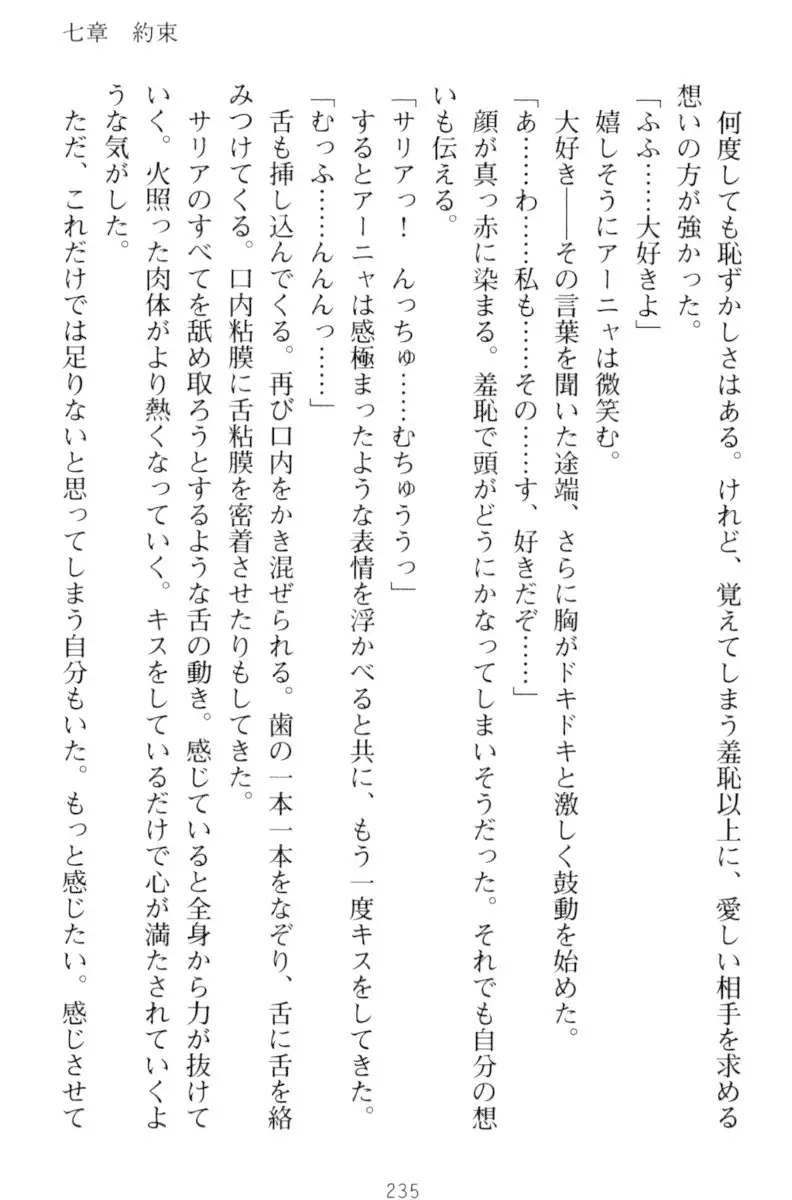 七章　約束
何度しても恥ずかしさはある。けれど、覚えてしまう羞恥以上に、愛しい相手を求める
想いの方が強かった。
「ふふ……大好きよ」
嬉しそうにアーニャは微笑む。
大好き――その言葉を聞いた途端、さらに胸がドキドキと激しく鼓動を始めた。
「あ……わ……私も……その……す、好きだぞ……」
顔が真っ赤に染まる。羞恥で頭がどうにかなってしまいそうだった。それでも自分の想
いも伝える。
「サリアっ！　んっちゅ……むちゅううっ」
するとアーニャは感極まったような表情を浮かべると共に、もう一度キスをしてきた。
「むっふ……んんんっ……」
舌も挿し込んでくる。再び口内をかき混ぜられる。歯の一本一本をなぞり、舌に舌を絡
みつけてくる。口内粘膜に舌粘膜を密着させたりもしてきた。
サリアのすべてを舐め取ろうとするような舌の動き。感じていると全身から力が抜けて
いく。火照った肉体がより熱くなっていく。キスをしているだけで心が満たされていくよ
うな気がした。
ただ、これだけでは足りないと思ってしまう自分もいた。もっと感じたい。感じさせて
235